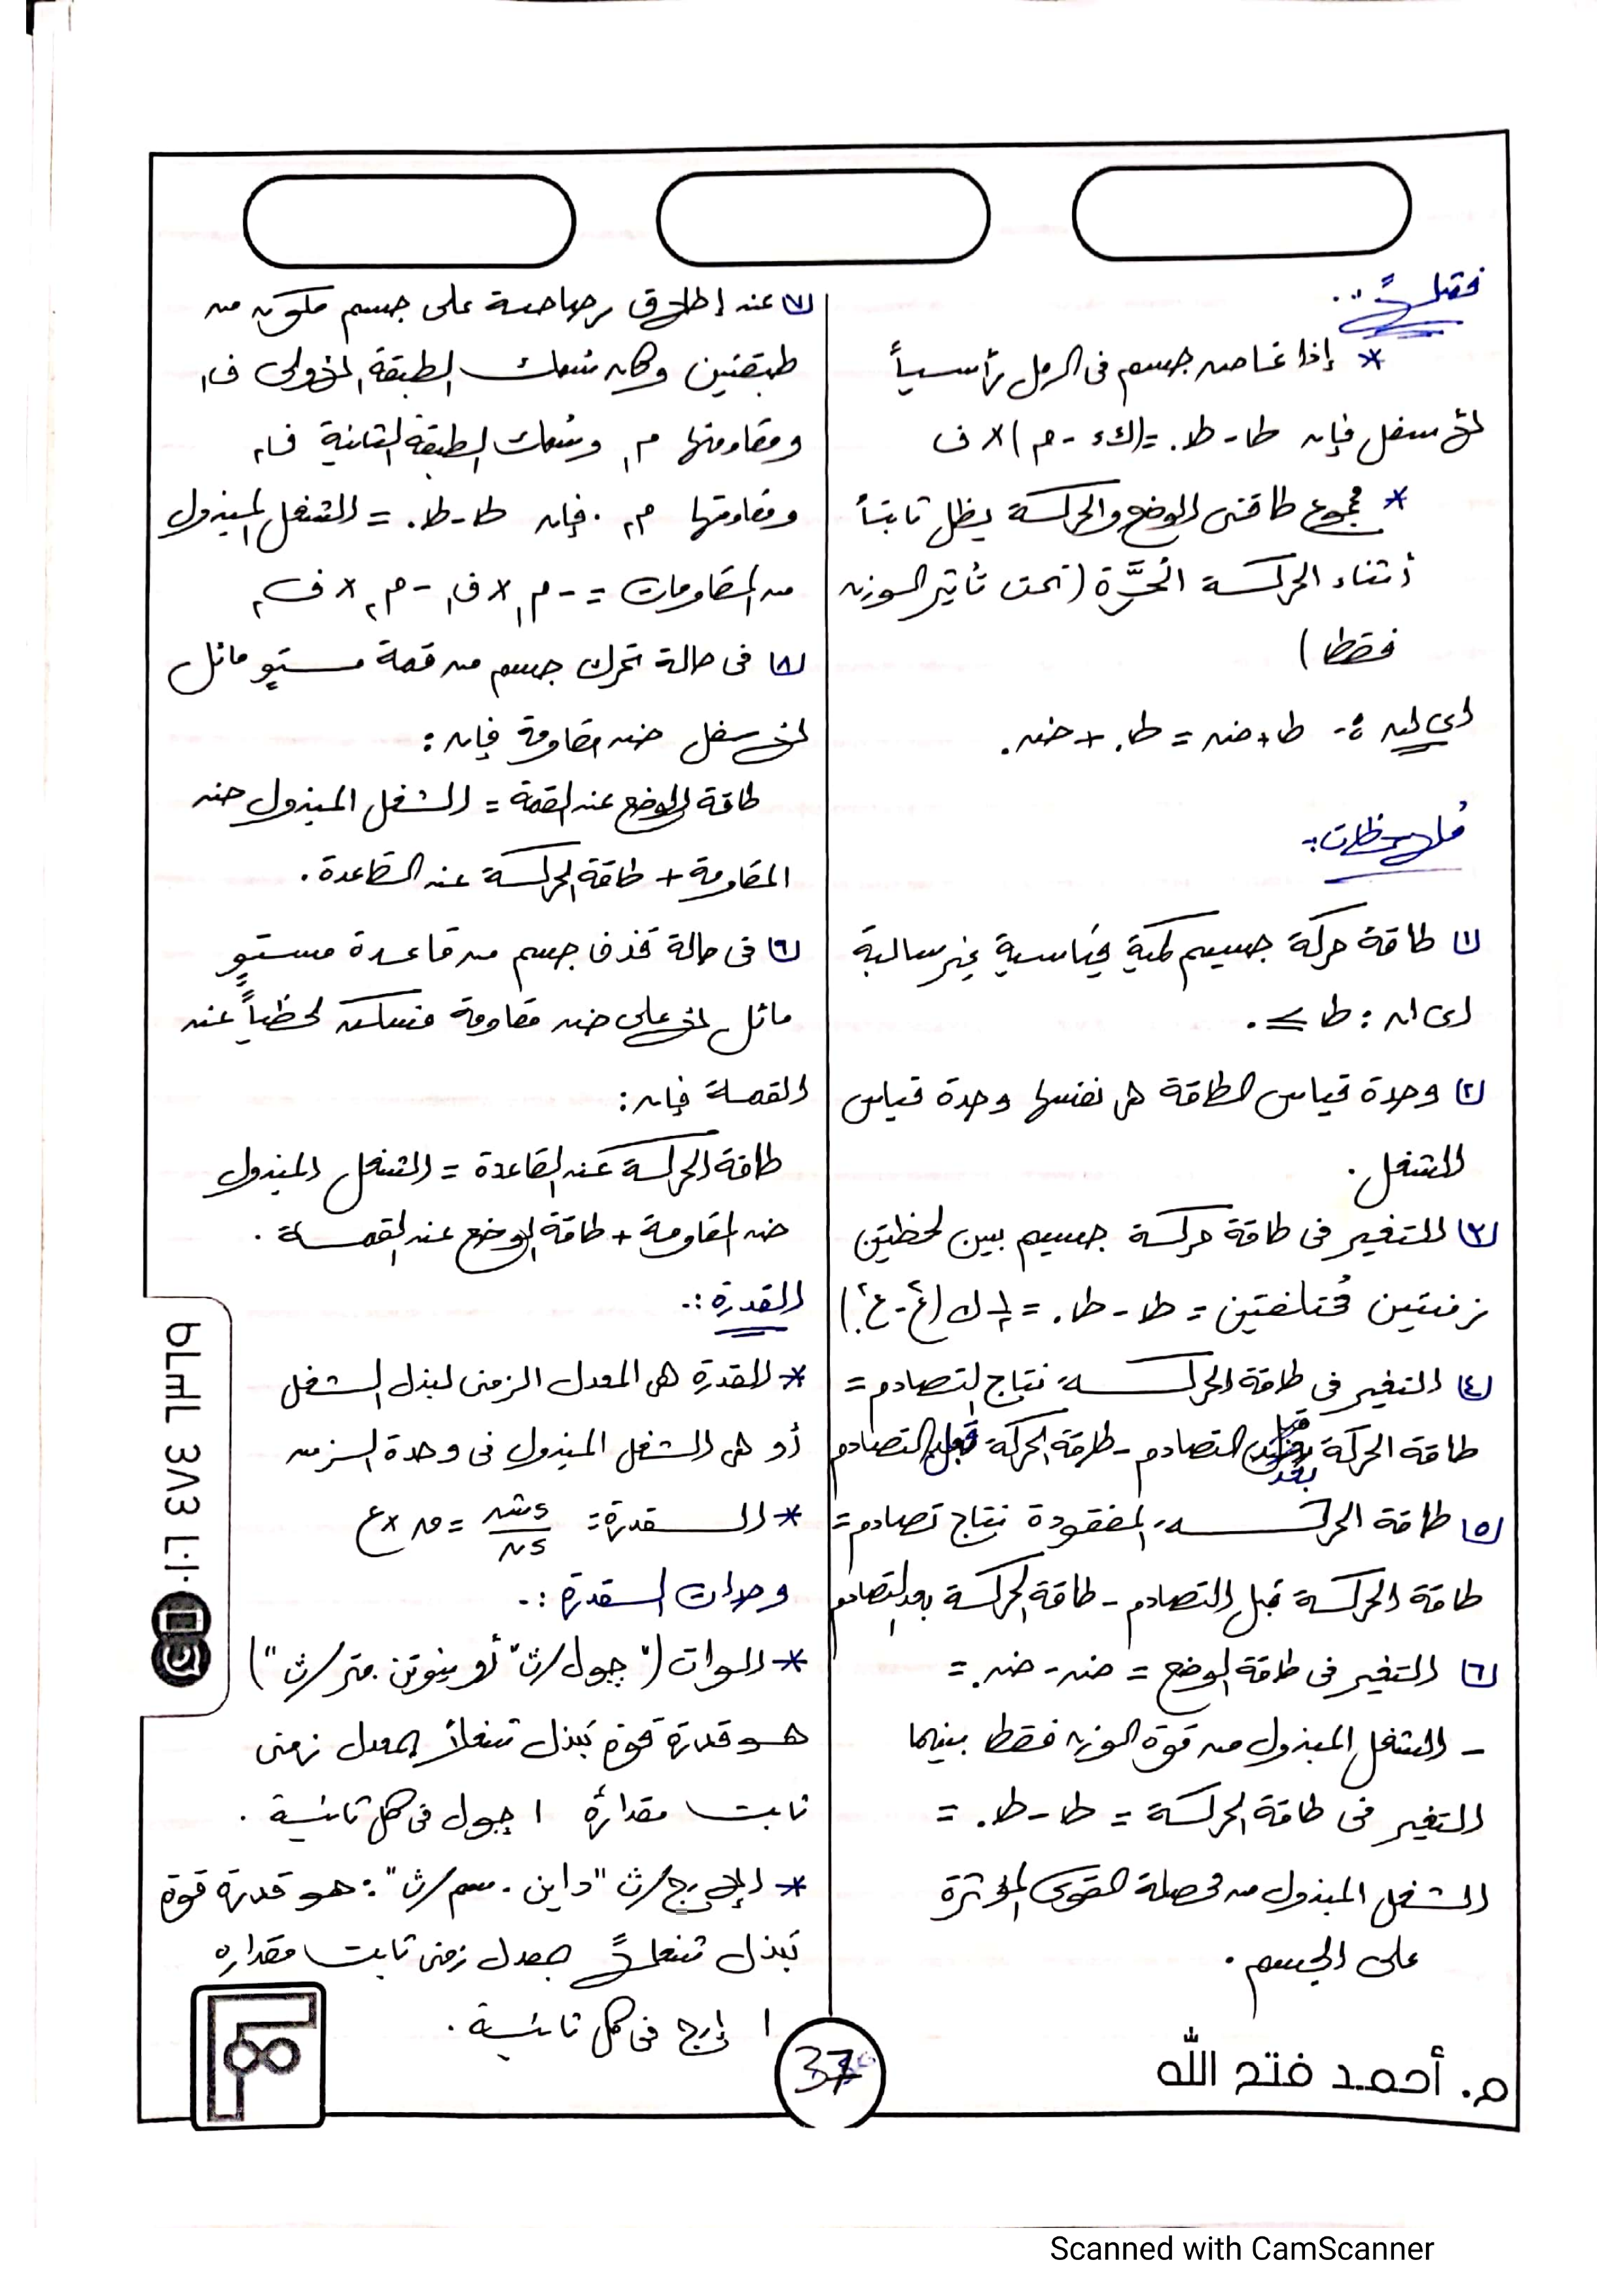 فمثلاً :.
* إذا غاص جسم فى الرمل رأسياً
لأسفل فإن ط - ط. = (ك ء - م) × ف
* مجموع طاقتى الوضع والحركة يظل ثابتاً
أثناء الحركة الحُرَّة (تحت تأثير الوزن
فقط)
اى ان :- ط + ض = ط. + ض.
مُلاحظات :-
١) طاقة حركة جسيم كمية قياسية غير سالبة
اى ان : ط ≥ ٠
٢) وحدة قياس الطاقة هى نفسها وحدة قياس
الشغل .
٣) التغير فى طاقة حركة جسيم بين لحظتين
زمنيتين مُختلفتين = ط - ط. = ١/٢ ك (ع٢ - ع.٢)
٤) التغير فى طاقة الحركة نتاج التصادم =
طاقة الحركة بعد التصادم - طاقة الحركة قبل التصادم
٥) طاقة الحركة المفقودة نتاج تصادم =
طاقة الحركة قبل التصادم - طاقة الحركة بعد التصادم
٦) التغير فى طاقة الوضع = ض - ض. =
- الشغل المبذول من قوة الوزن فقط بينما
التغير فى طاقة الحركة = ط - ط. =
الشغل المبذول من محصلة القوى المؤثرة
على الجسم .
٧) عند إطلاق رصاصة على جسم مكون من
طبقتين وكان سُمك الطبقة الأولى ف١
ومقاومتها م١ وسُمك الطبقة الثانية ف٢
ومقاومتها م٢ . فإن ط - ط. = الشغل المبذول
من المقاومات = - م١ × ف١ - م٢ × ف٢
٨) فى حالة تحرك جسم من قمة مستوٍ مائل
لأسفل ضد مقاومة فإن :
طاقة الوضع عند القمة = الشغل المبذول ضد
المقاومة + طاقة الحركة عند القاعدة .
٩) فى حالة قذف جسم من قاعدة مستوٍ
مائل لأعلى ضد مقاومة فسكن لحظياً عند
القمة فإن :
طاقة الحركة عند القاعدة = الشغل المبذول
ضد المقاومة + طاقة الوضع عند القمة .
القدرة :.
* القدرة هى المعدل الزمنى لبذل الشغل
أو هى الشغل المبذول فى وحدة الزمن
* القدرة = ءش/ءن = ق × ع
وحدات القدرة :.
* الوات ("جول/ث" أو "نيوتن . متر/ث")
هو قدرة قوة تبذل شغلاً بمعدل زمنى
ثابت مقدارهُ ١ جول فى كل ثانية .
* الإرج/ث "داين . سم/ث" : هو قدرة قوة
تبذل شغلاً بمعدل زمنى ثابت مقداره
١ إرج فى كل ثانية .
م. أحمد فتح الله
37
Scanned with CamScanner